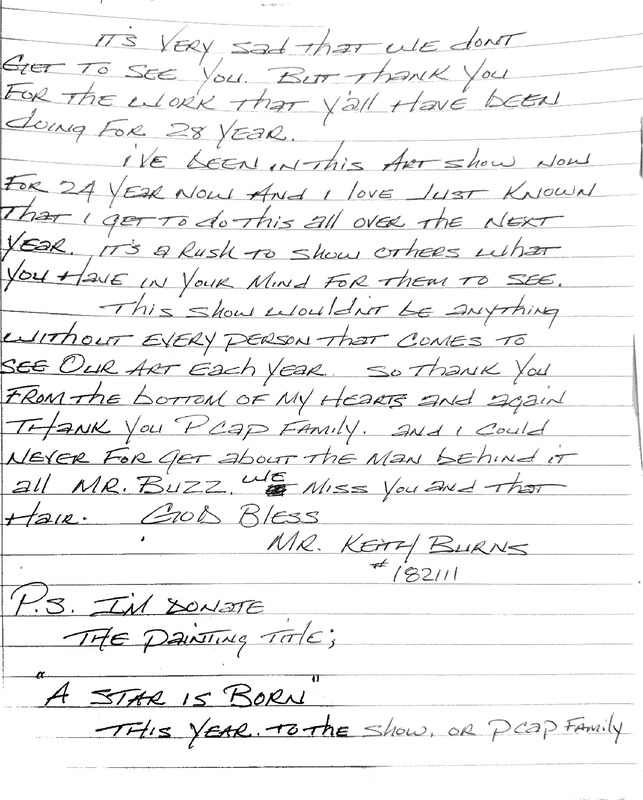 IT'S VERY sad that WE dONT
GET TO SEE YOU. BUT THANK YOU
FOR THE WORK THAT Y'all HAVE bEEN
doing FOR 28 YEAR.
I'VE bEEN IN THIS ART show NOW
FOR 24 YEAR NOW AND I lOVE JUST KNOWN
THAT I GET TO do THIS all OVER THE NEXT
YEAR. IT'S a RUSH TO SHOW OTHERS WHAT
YOU HAVE IN YOUR MIND FOR THEM TO SEE.
THIS SHOW WOULDN'T bE anything
WITHOUT EVERY PERSON THAT COMES TO
SEE OUR ART Each YEAR. SO THANK YOU
FROM THE bOTTOM OF MY HEARTS and again
THANK YOU PCap FAMILY. and I COULD
NEVER FOR GET about THE MAN behind iT
all MR. BUZZ. WE MISS YOU and THAT
HAIR. GOD BLESS
MR. KEITH BURNS
#182111
P.S. I'M DONATE
THE PAINTING TITLE;
"A STAR IS BORN"
THIS YEAR. TO THE SHOW. OR PCap FAMILY